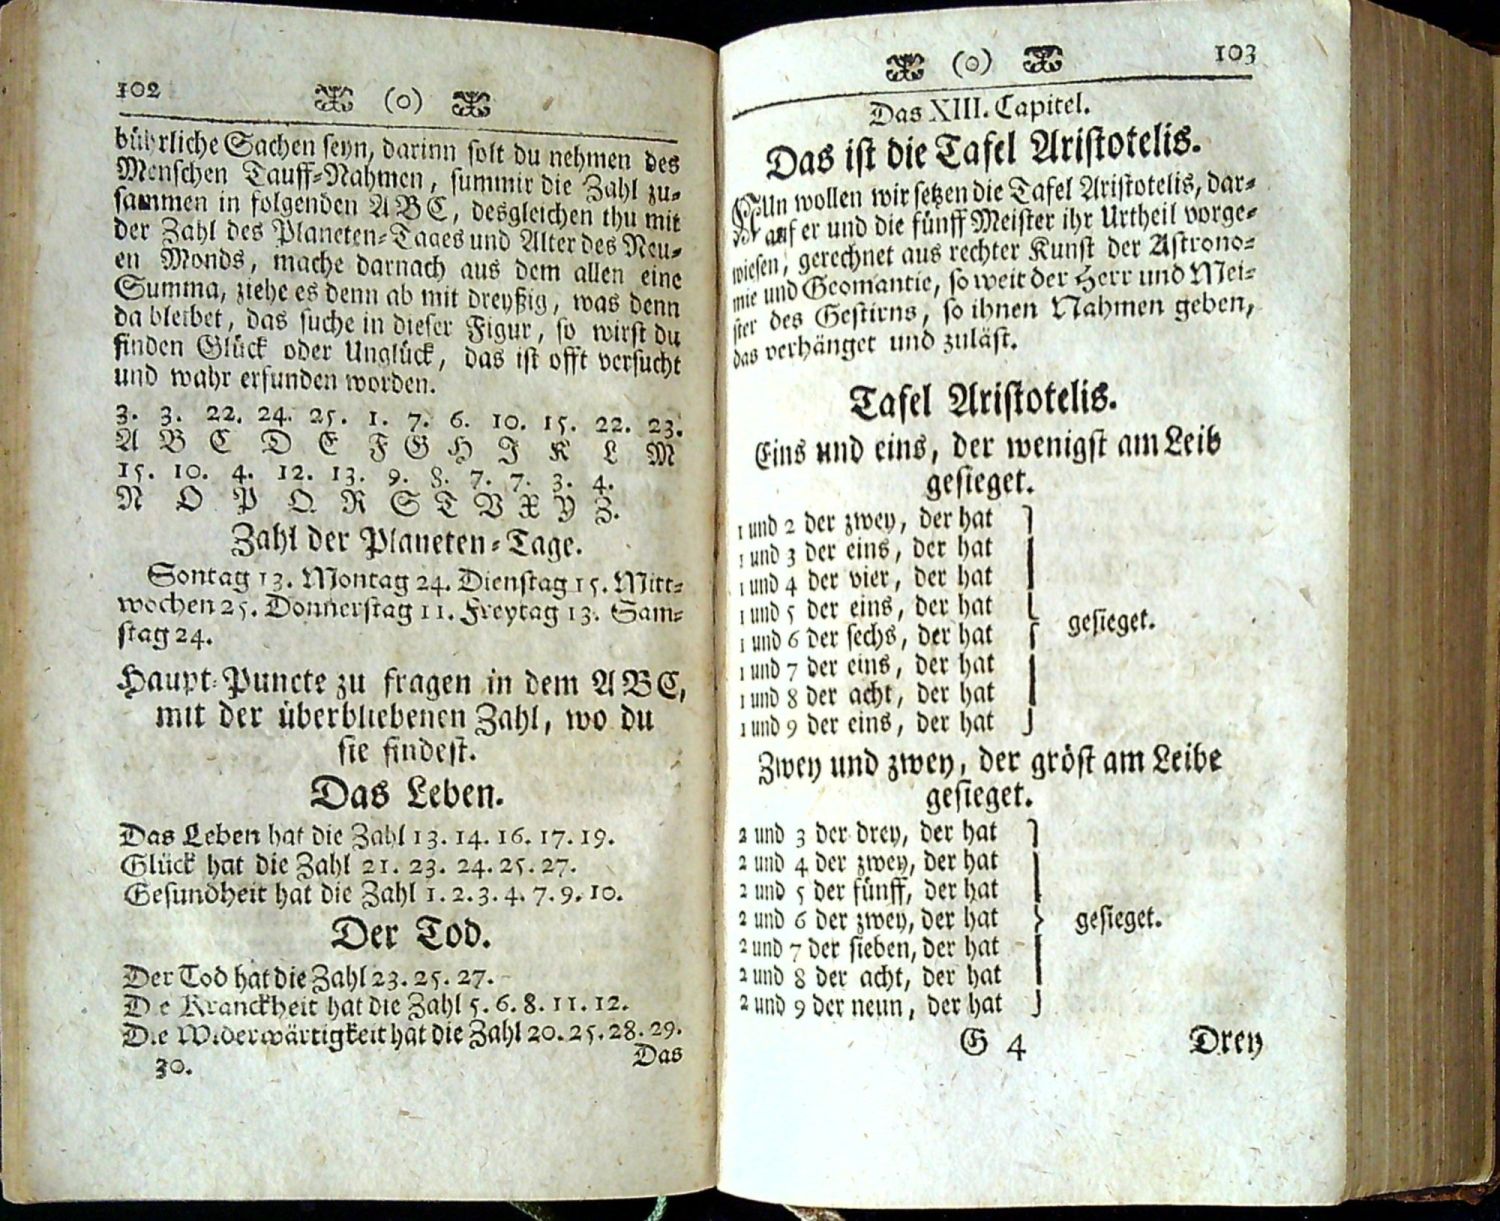 102 (0)
bührliche Sachen seyn, darinn solt du nehmen des
Menschen Tauff-Nahmen, summir die Zahl zu-
sammen in folgenden ABC, desgleichen thu mit
der Zahl des Planeten-Tages und Alter des Neu-
en Monds, mache darnach aus dem allen eine
Summa, ziehe es denn ab mit dreyßig, was denn
da bleibet, das suche in dieser Figur, so wirst du
finden Glück oder Unglück, das ist offt versucht
und wahr erfunden worden.
3. 3. 22. 24. 25. 1. 7. 6. 10. 15. 22. 23.
A B C D E F G H I K L M
15. 10. 4. 12. 13. 9. 8. 7. 7. 3. 4.
N O P Q R S T V X Y Z.
Zahl der Planeten-Tage.
Sontag 13. Montag 24. Dienstag 15. Mitt-
wochen 25. Donnerstag 11. Freytag 13. Sam-
stag 24.
Haupt-Puncte zu fragen in dem ABC,
mit der überbliebenen Zahl, wo du
sie findest.
Das Leben.
Das Leben hat die Zahl 13. 14. 16. 17. 19.
Glück hat die Zahl 21. 23. 24. 25. 27.
Gesundheit hat die Zahl 1. 2. 3. 4. 7. 9. 10.
Der Tod.
Der Tod hat die Zahl 23. 25. 27.
Die Kranckheit hat die Zahl 5. 6. 8. 11. 12.
Die Widerwärtigkeit hat die Zahl 20. 25. 28. 29.
30. Das
(0) 103
Das XIII. Capitel.
Das ist die Tafel Aristotelis.
NUn wollen wir setzen die Tafel Aristotelis, dar-
auf er und die fünff Meister ihr Urtheil vorge-
wiesen, gerechnet aus rechter Kunst der Astrono-
mie und Geomantie, so weit der Herr und Mei-
ster des Gestirns, so ihnen Nahmen geben,
das verhänget und zuläst.
Tafel Aristotelis.
Eins und eins, der wenigst am Leib
gesieget.
1 und 2 der zwey, der hat
1 und 3 der eins, der hat
1 und 4 der vier, der hat
1 und 5 der eins, der hat
gesieget.
1 und 6 der sechs, der hat
1 und 7 der eins, der hat
1 und 8 der acht, der hat
1 und 9 der eins, der hat
Zwey und zwey, der gröst am Leibe
gesieget.
2 und 3 der drey, der hat
2 und 4 der zwey, der hat
2 und 5 der fünff, der hat
2 und 6 der zwey, der hat } gesieget.
2 und 7 der sieben, der hat
2 und 8 der acht, der hat
2 und 9 der neun, der hat
G 4 Drey